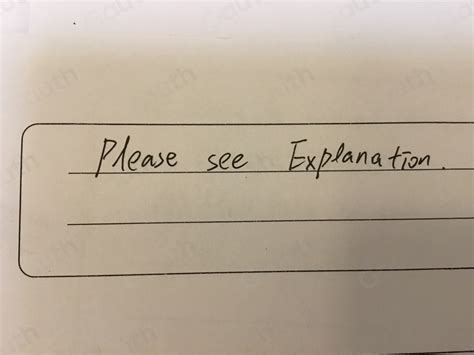 Please see Explanation.